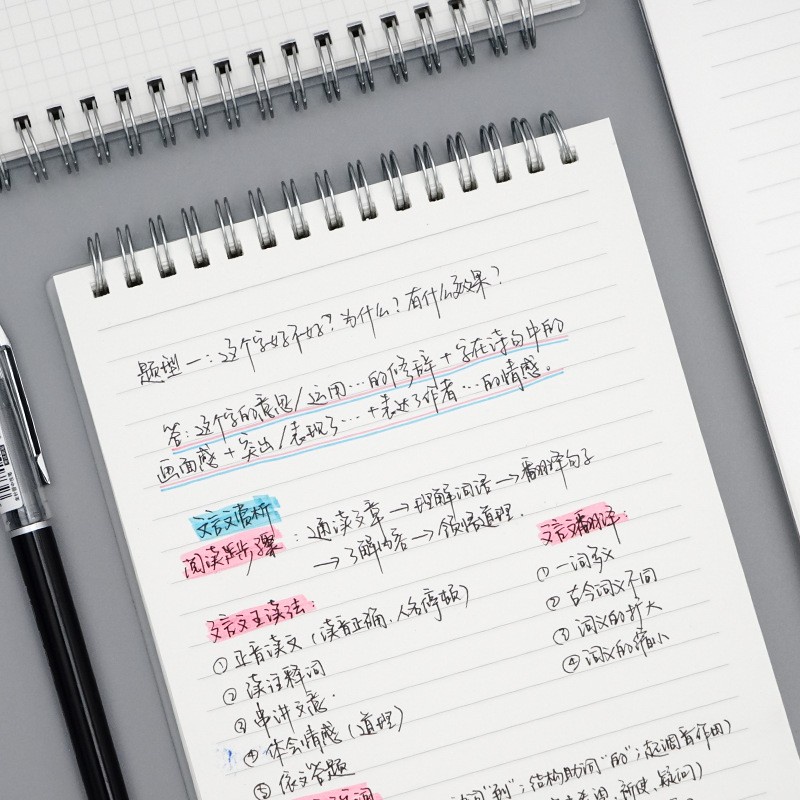 题型一：这个字好不好？为什么？有什么效果？
答：这个字的意思/运用…的修辞+字在诗句中的
画面感+突出/表现了…+表达了作者…的情感。
文言文赏析
阅读步骤：通读文章→理解词语→翻译句子
→了解内容→领悟道理.
文言文翻译：
① 一词多义
② 古今词义不同
③ 词义的扩大
④ 词义的缩小
文言文 读法：
① 正音读文（读音正确、人名停顿）
② 读注释词
③ 串讲文意.
④ 体会情感（道理）
⑤ 依文答题
"到"；结构助词"的"；起调音作用）
疑问）